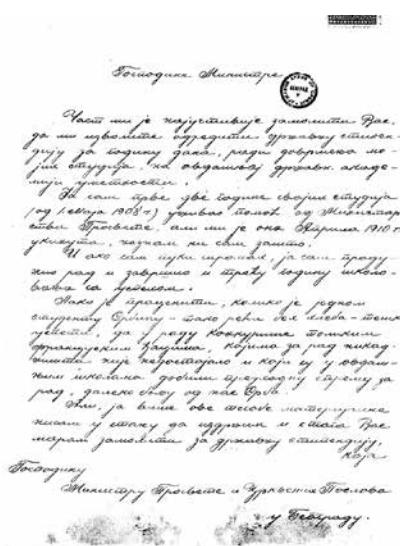 Господине Министре
Част ми је најучтивије замолити Вас,
да ми изволите одредити државну стипен-
дију за годину дана, ради довршења мо-
јих студија, на овдашњој државн. акаде-
мији уметности.
Ја сам прве две године својих студија
(од 1. Маја 1908 г.) уживао помоћ од Министар-
ства Просвете, али ми је она Априла 1910 г.
укинута, незнам ни сам зашто.
И ако сам пуки сиромах, ја сам проду-
жио рад и завршио и трећу годину школо-
вања са успехом.
Лако је проценити, колико је једном
студенту Србину – тако рећи без хлеба – тешко
успети, да у раду конкурише толиким
француским ђацима, којима за рад никад
ништа није недостајало и који су у овдаш-
њим школама добили претходну спрему за
рад, далеко бољу од нас Срба.
Али, ја више ове тегобе материјалне
нисам у стању да издржим и стога Вас
морам замолити за државну стипендију,
која
Господину
Министру Просвете и Црквених Послова
у Београду.